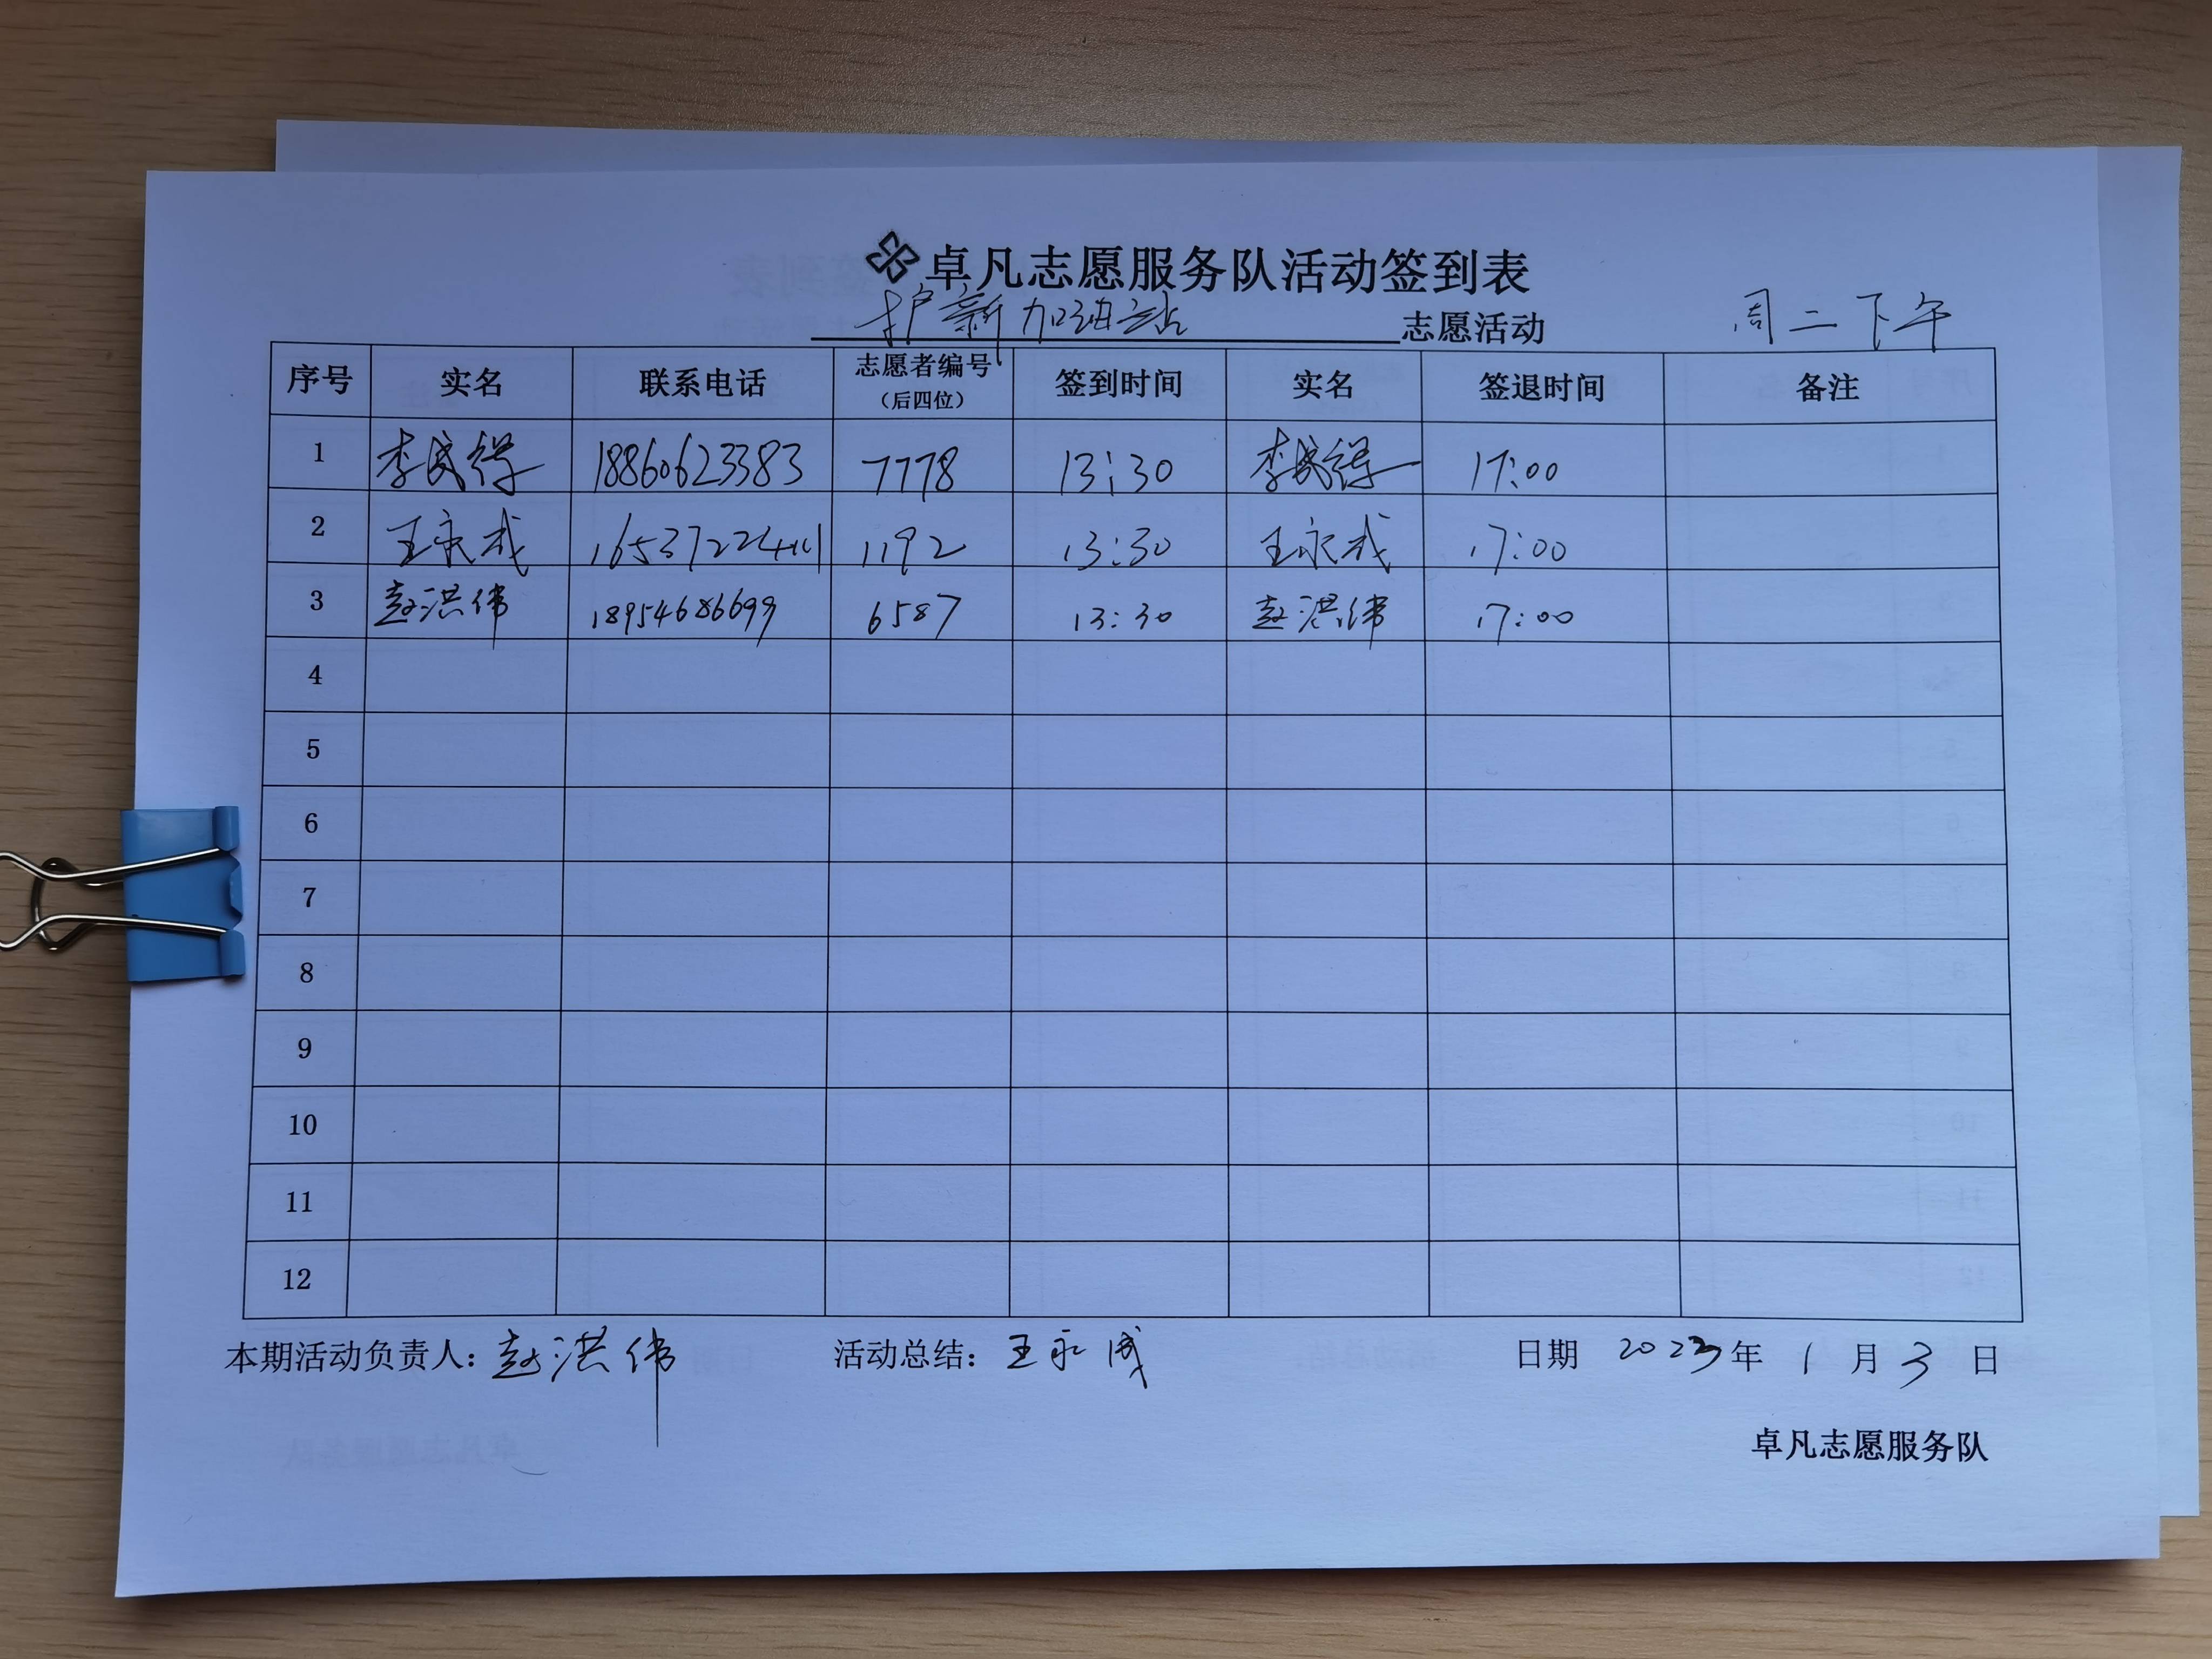 卓凡志愿服务队活动签到表
护新加油站 志愿活动 周二下午
序号 实名 联系电话 志愿者编号（后四位） 签到时间 实名 签退时间 备注
1 李成得 18860623383 7778 13:30 李成得 17:00
2 王永成 1192 13:30 王永成 17:00
3 赵洪伟 18954686699 6587 13:30 赵洪伟 17:00
4
5
6
7
8
9
10
11
12
本期活动负责人：赵洪伟 活动总结：王永成 日期 2023年 1月3日
卓凡志愿服务队